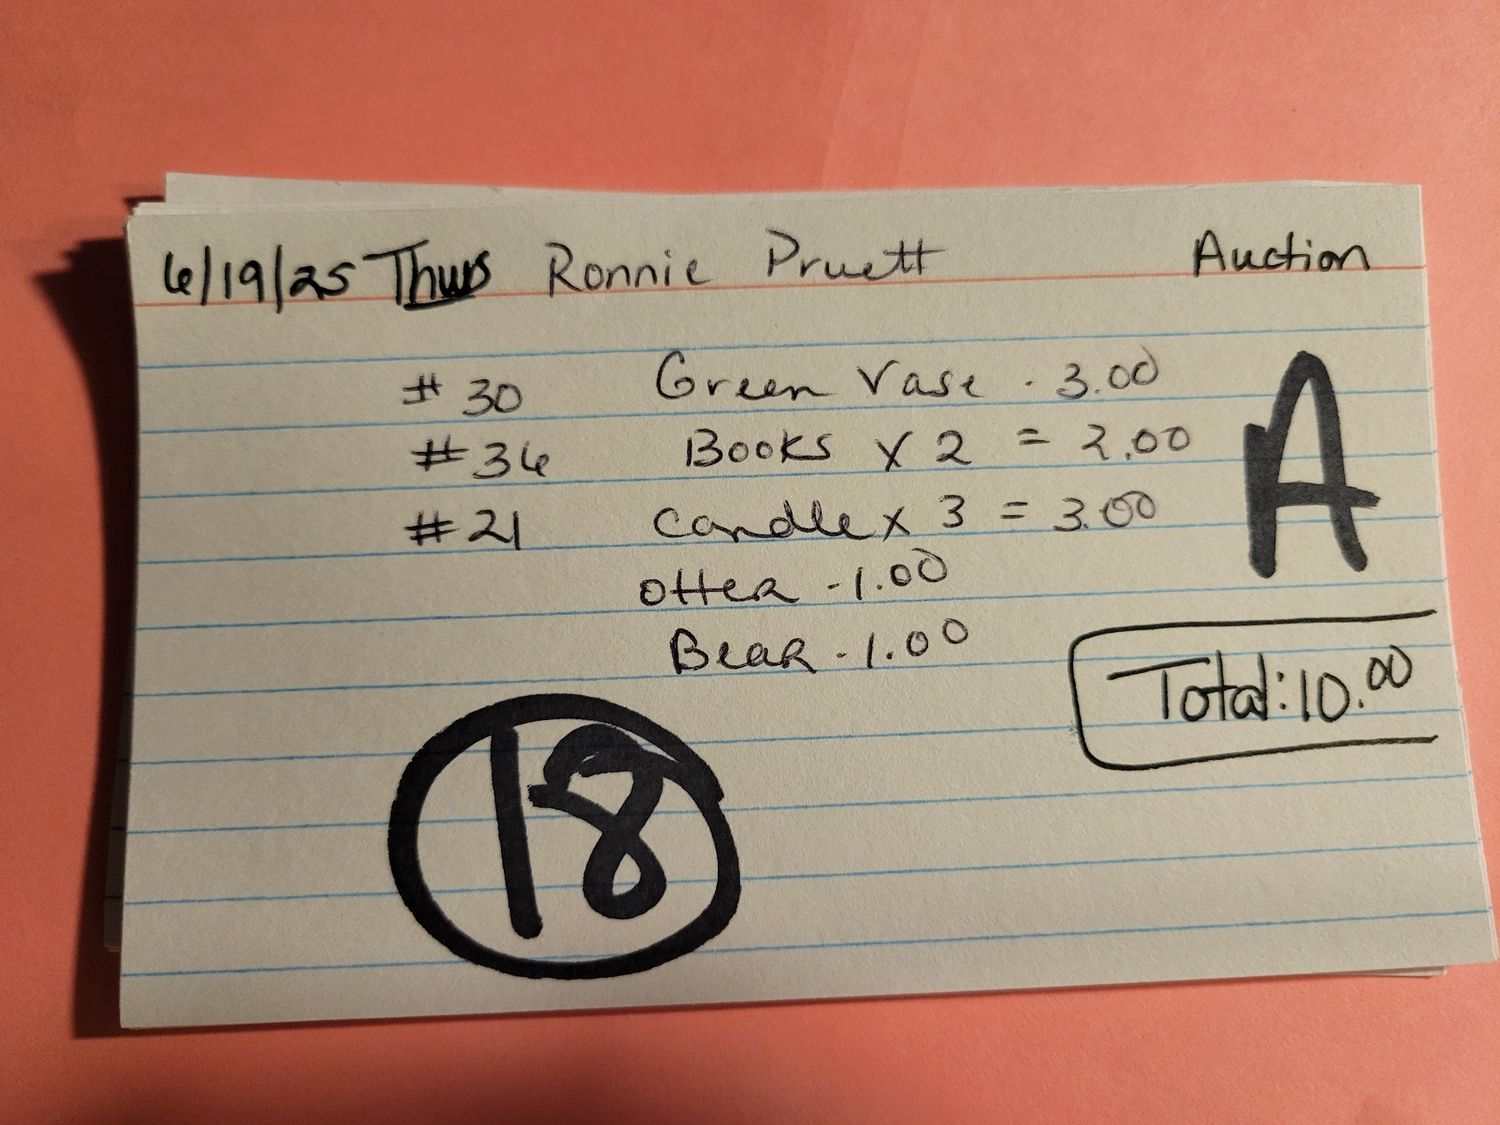 6/19/25 Thurs Ronnie Pruett Auction
#30 Green Vase - 3.00
#36 Books x 2 = 2.00
#21 Candle x 3 = 3.00
Otter - 1.00
Bear - 1.00
A
Total: 10.00
18